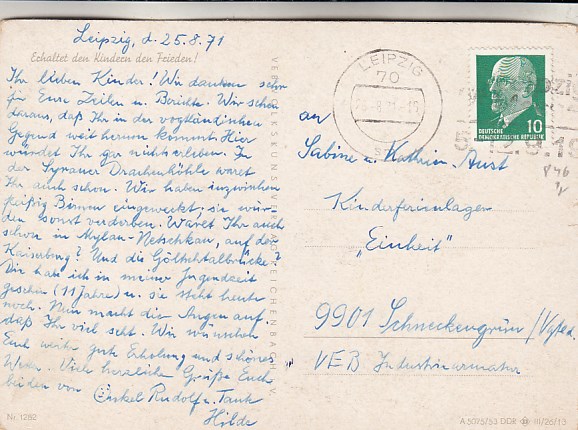 Leipzig, d. 25.8.71
Erhaltet den Kindern den Frieden!
Ihr lieben Kinder! Wir danken sehr
für Eure Zeilen u. Berichte. Wir sehen
daraus, daß Ihr in der vogtländischen
Gegend weit herum kommt. Hier
würdet Ihr gar nichts erleben. In
der Syrauer Drachenhöhle waret
Ihr auch schon. Wir haben inzwischen
fleißig Birnen eingeweckt, sie wür
den sonst verderben. Waret Ihr auch
schon in Mylau-Netschkau, auf der
Kaiserburg? Und die Göltschtalbrücke?
Die hab ich in meiner Jugendzeit
gesehen (11 Jahre) u. sie steht heute
noch. Nun macht die Augen auf
daß Ihr viel seht. Wir wünschen
Euch weiter gute Erholung und schönes
Viele herzliche Grüße Euch
beiden von Onkel Rudolf u. Tante
Hilde
Nr. 1282
LEIPZIG
70
DEUTSCHE
DEMOKRATISCHE REPUBLIK
10
an
Sabine u. Kathrin Aust
Kinderferienlager
"Einheit"
9901 Schneckengrün/Vgtld.
VEB Industriearmatur
A 5075/53 DDR III/26/13